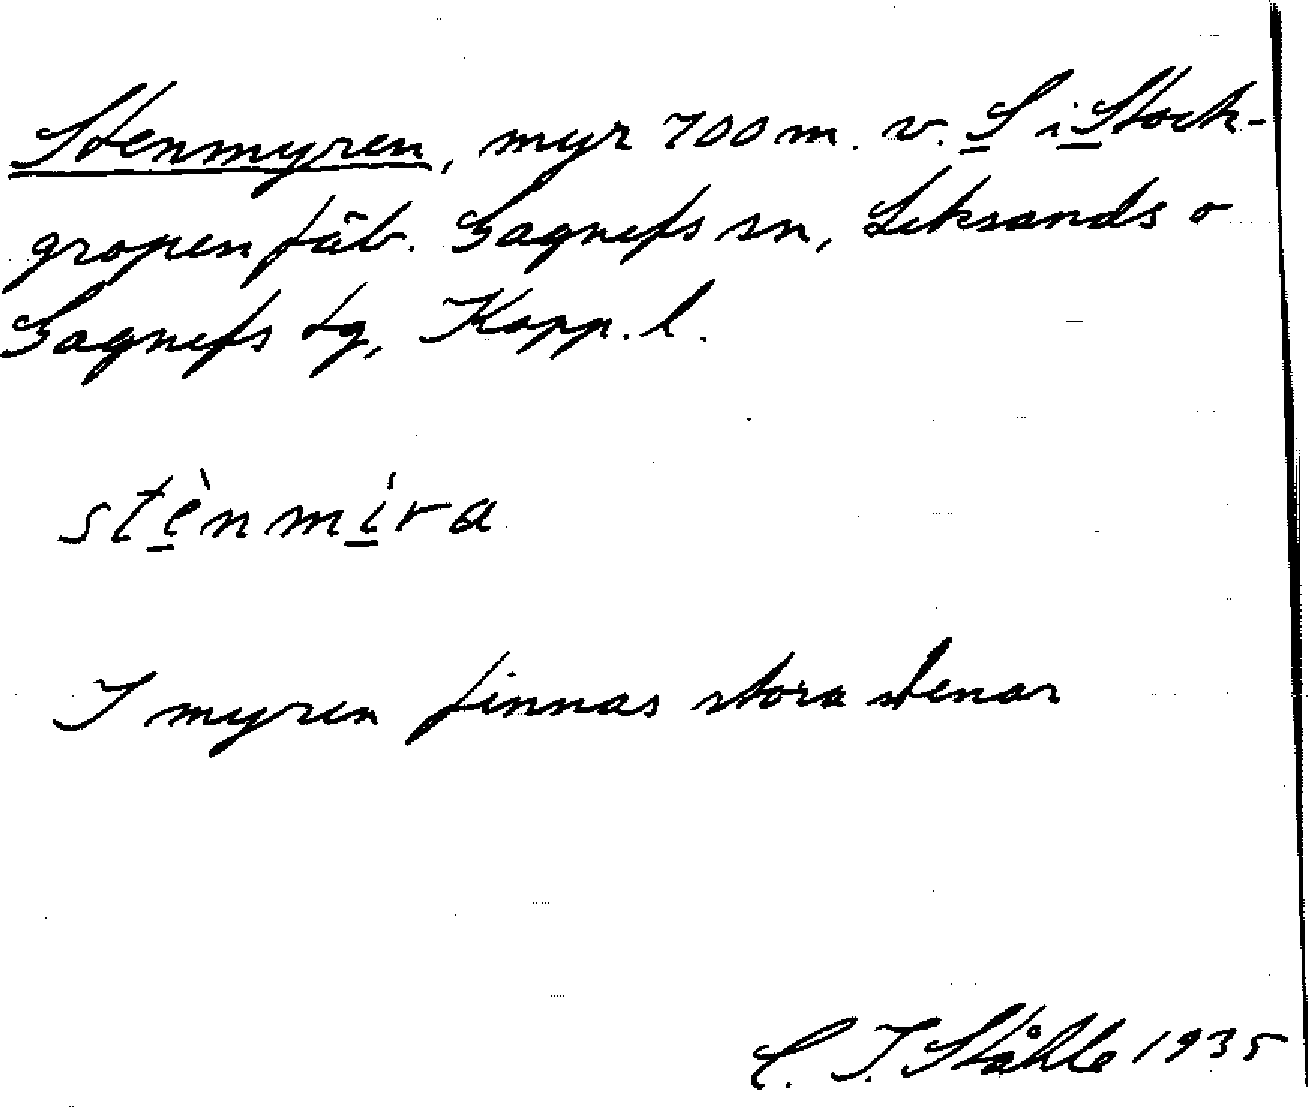 Stenmyren, myr 700 m. v. S i Stock-
gropen fäb. Gagnefs sn, Leksands o
Gagnefs tg, Kopp. l.
stènmíra
I myren finnas stora stenar
C. I. Ståhle 1935